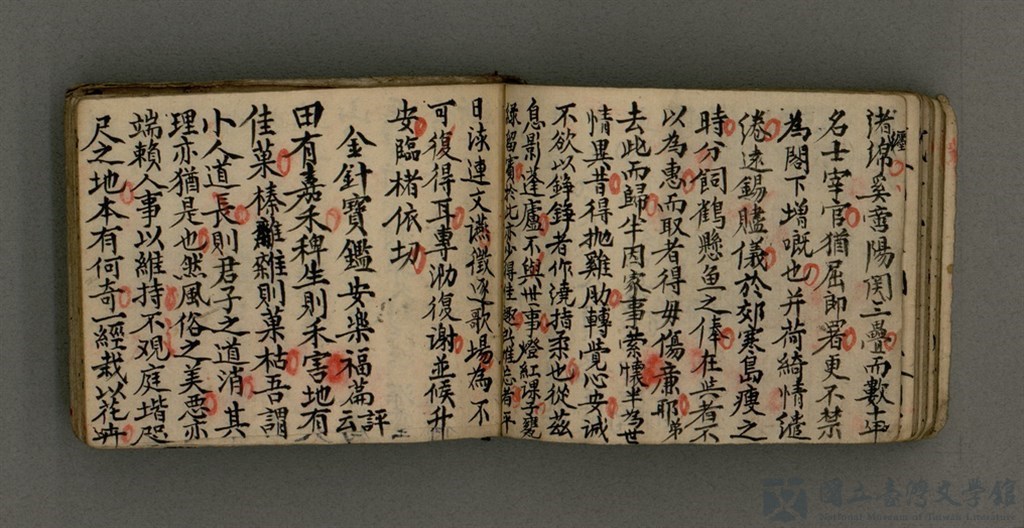 渚綿奚啻陽関三疊而數十年
經
名士宰官猶屈郎署更不禁
為閣下增嘅也并荷綺情繾
綣遠錫贐儀於郊寒島瘦之
時分飼鶴懸魚之俸在与者不
以為惠而取者得毋傷亷耶弟
去此而歸半因家事縈懷半為世
情異昔得抛雞肋轉覺心安誠
不欲以錚錚者作遶指柔也從茲
息影蓬廬不與世事燈紅課子甕
綠留賓於此亦少得佳趣此惟忘者平
日淡連文讌徵逐歌場為不
可復得耳專泐復謝並候升
安臨楮依切
金針寶鑑安樂福篇云評
田有嘉禾稗生則禾害地有
佳菓榛雖雖則菓枯吾謂
小人道長則君子之道消其
理亦猶是也然風俗之美惡亦
端賴人事以維持不观庭堦咫
尺之地本有何奇一經栽以花卉
國立臺灣文學館
National Museum of Taiwan Literature